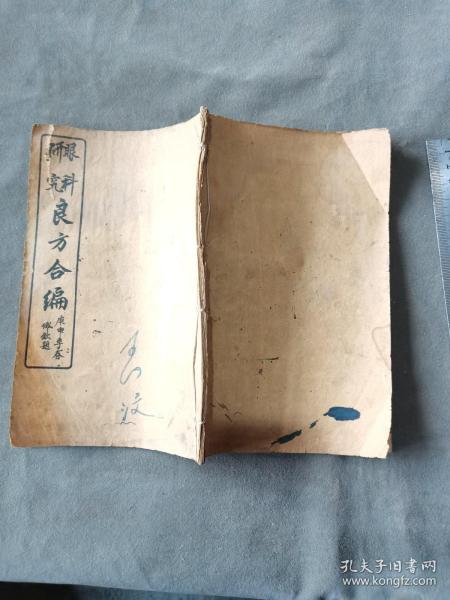 眼科
研究
良方合编
庚申季春
孔夫子旧书网
www.kongfz.com